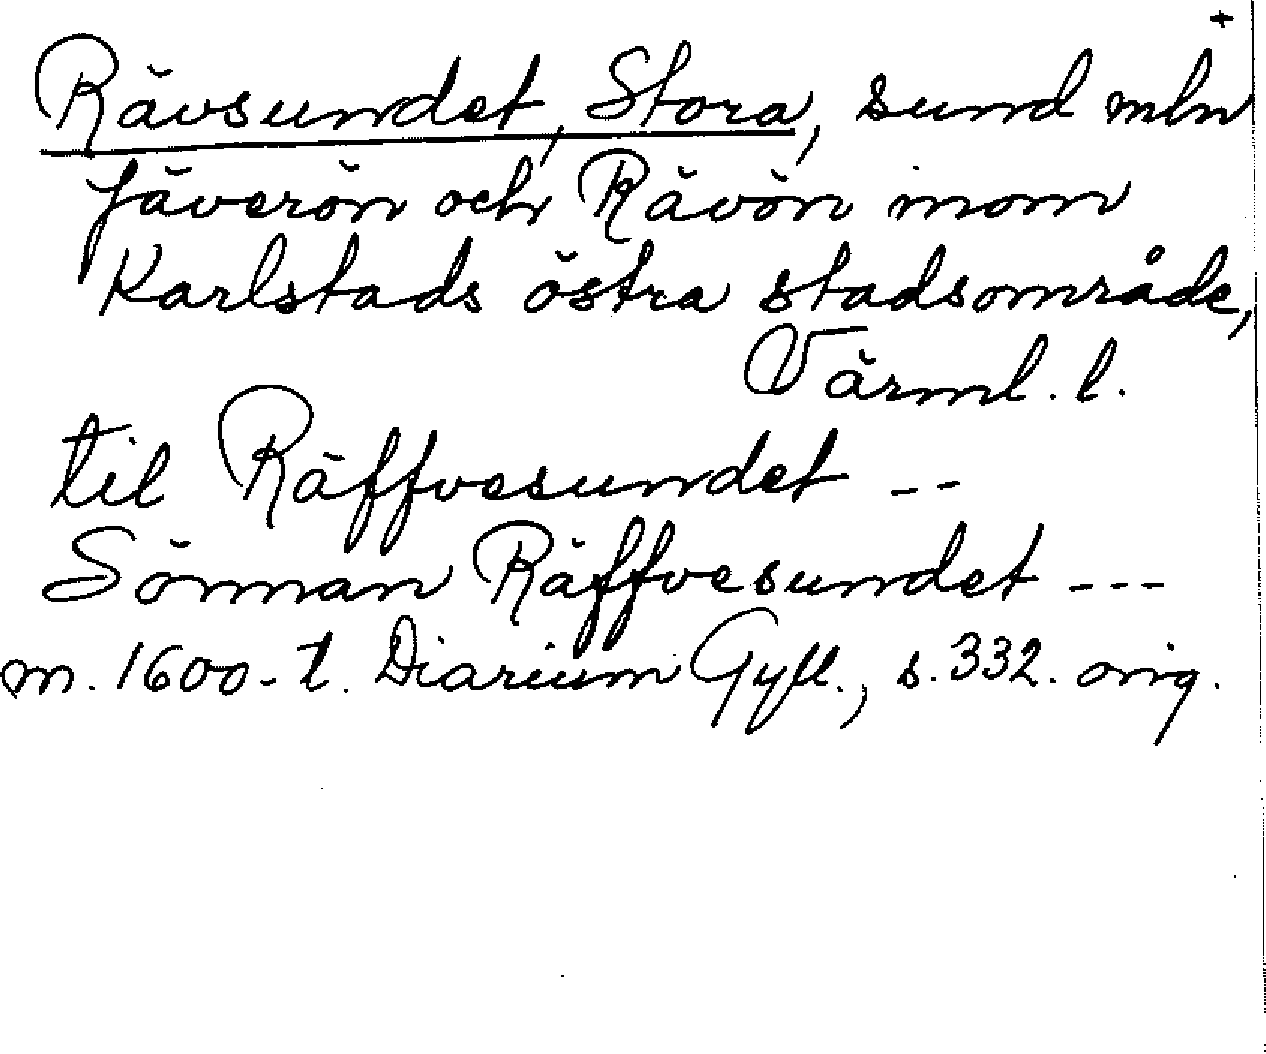 +
Rävsundet, Stora, sund mln
Jäverön och Rävön inom
Karlstads östra stadsområde,
Värml. l.
til Räffvesundet --
Sönnan Räffvesundet ---
m. 1600-t. Diarium Gyll., s. 332. orig.